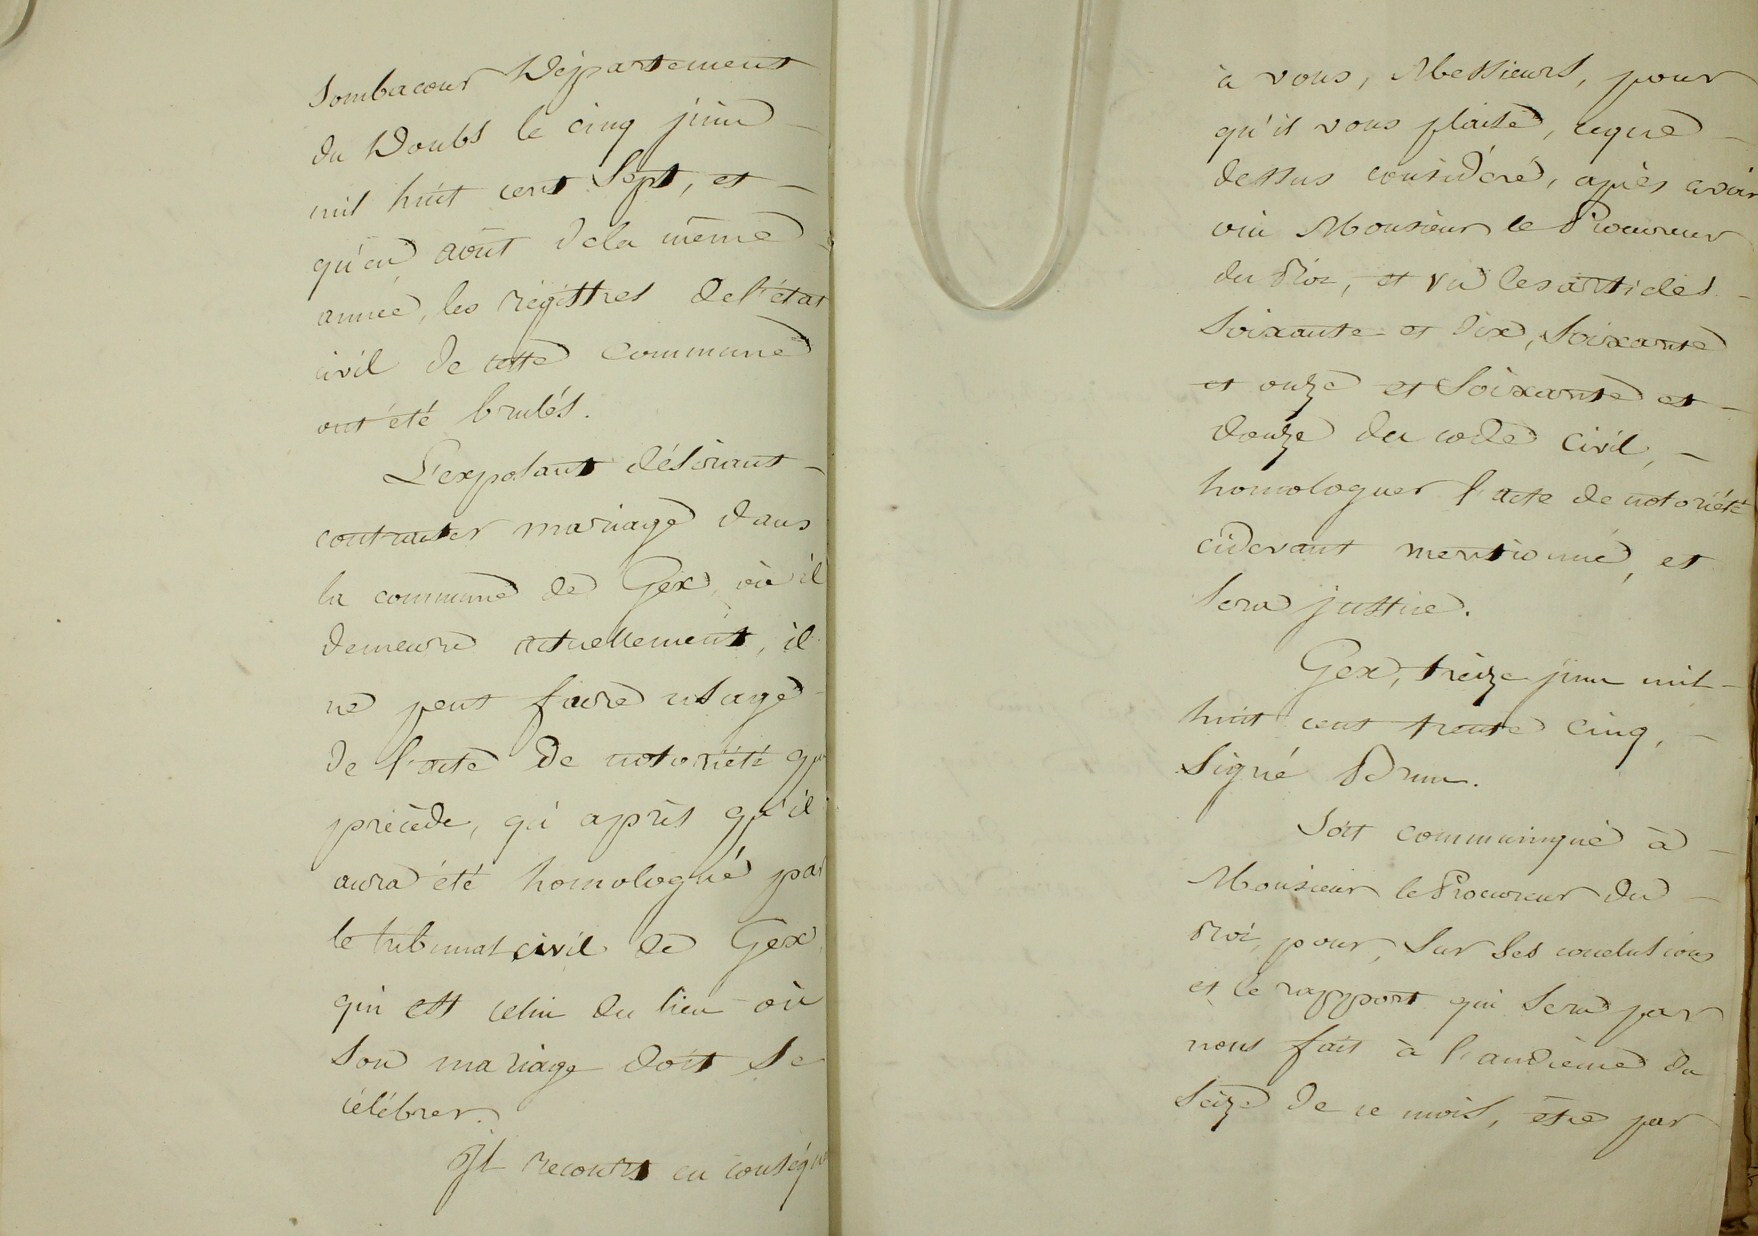 Sombacour Département
du Doubs le cinq juin
mil huit cent Sept, et
qu'en août dela même
année, les régistres del'état
civil de cette commune
ont été brulés.
L'exposant désirant
contracter mariage dans
la commune de Gex, où il
demeure actuellement, il
ne peut faire usage
de l'acte de notoriété qui
précède, qu'après qu'il
aura été homologué par
le tribunal civil de Gex,
qui est celui du lieu où
son mariage doit se
célébrer.
Il recourt en conséqu
à vous, Messieurs, pour
qu'il vous plaise, ceque
dessus considéré, après avoir
oui Monsieur le Procureur
du Roi, et vu les articles
Soixante et dix, Soixante
et onze et Soixante et
douze du code civil,
homologuer l'acte de notoriété
cidevant mentionné, et
Sera justice.
Gex, treize juin mil
huit cent trente cinq,
Signé Brun.
Soit communiqué à
Monsieur le Procureur du
Roi, pour, Sur Ses conclusions
et le rapport qui Sera par
nous fait à l'audience du
Seize de ce mois, être par